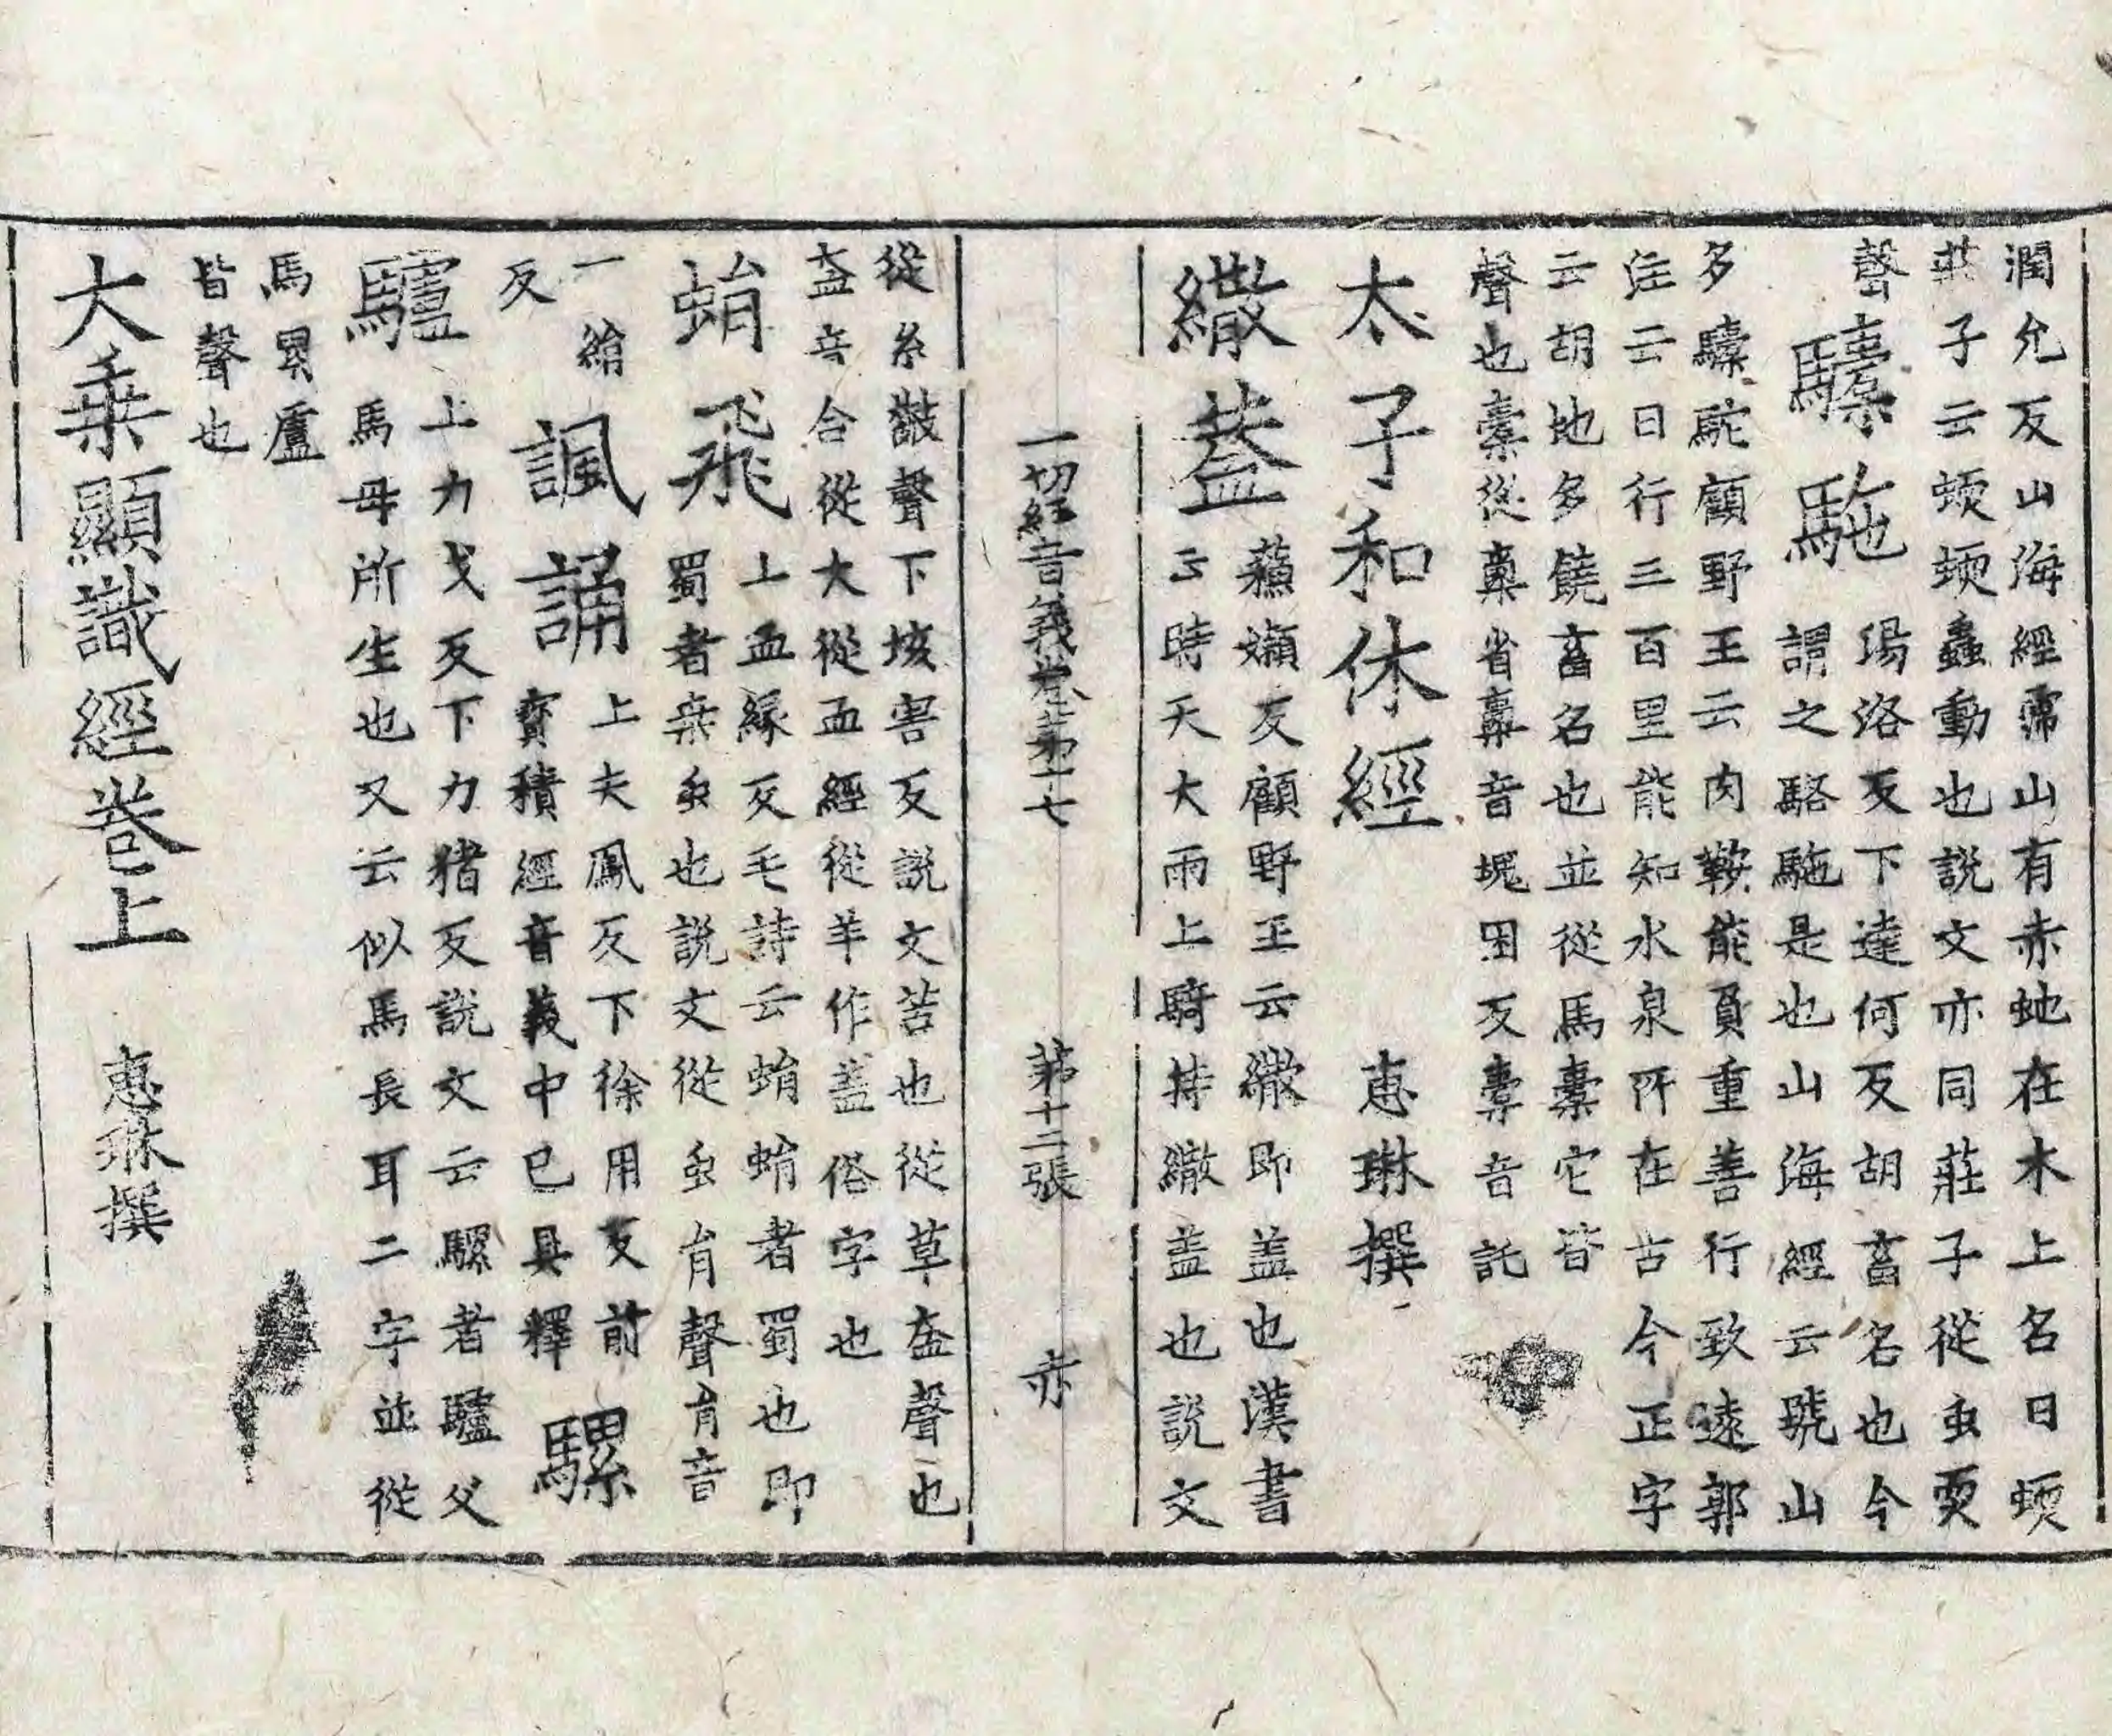 潤允反山海經霈山有赤虵在木上名曰蝡
莊子云蝡蝡蟲動也說文亦同莊子從虫耎
聲
驝駞
瑒洛反下達何反胡畜名也今
謂之駱駞是也山海經云號山
多驝駝顧野王云肉鞍能負重善行致遠郭
注云日行三百里能知水泉所在古今正字
云胡地多饒畜名也並從馬橐它皆
聲也橐從㯻省㯻音塊困反橐音託
太子和休經 惠琳撰
繖蓋
蘓嬾反顧野王云繖即盖也漢書
云時天大雨上騎持繖盖也說文
一切經音義卷第十七 第十二張 赤
從糸㪔聲下垓害反說文苫也從草盇聲也
盍音合從大從血經從羊作盖俗字也
蜎飛
上血緣反毛詩云蜎蜎者蜀也即
蜀者桒虫也說文從虫肙聲肙音
一綰
反
諷誦
上夫鳳反下徐用反前
寶積經音義中已具釋
騾
驢
上力戈反下力猪反說文云騾者驢父
馬母所生也又云似馬長耳二字並從
馬累盧
皆聲也
大乗顯識經卷上 惠琳撰